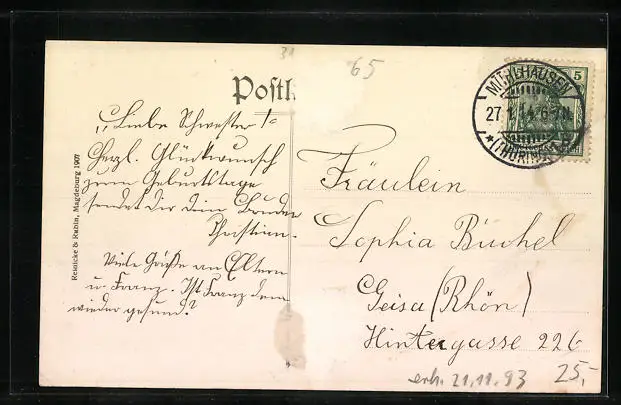 31
65
Postk
MÜHLHAUSEN
27.1.14.6-7N.
* (THÜRINGEN)
5
"Liebe Schwester!"
Herzl. Glückwunsch
zum Geburtstage
sendet dir dein Bruder
Christian.
Viele Grüße an Eltern
u. Franz. Ist Franz denn
wieder gesund?
Reinicke & Rubin, Magdeburg 1907
Fräulein
Sophia Büchel
Geisa (Rhön)
Hintergasse 226
erh. 21.11.93
25,-